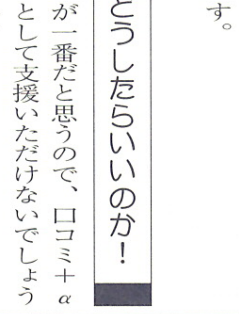 す。
どうしたらいいのか!
が一番だと思うので、口コミ+α
として支援いただけないでしょう